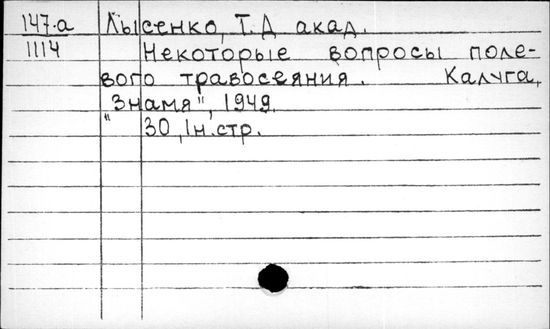 147.а Лысенко, Т.Д акад.
1114 Некоторые вопросы поле-
вого травосеяния. Калуга,
"Знамя", 1949.
30, 1н.стр.